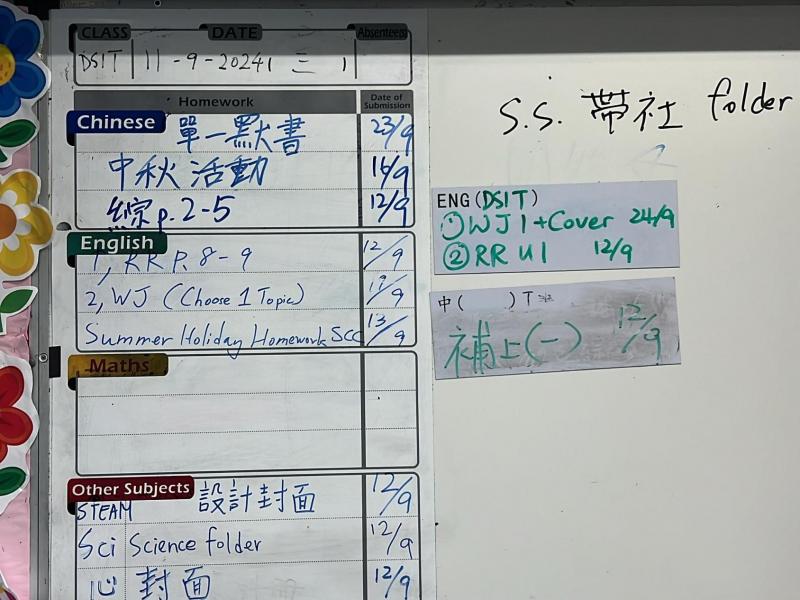 CLASS DATE Absentees
DSIT 11-9-2024 三 1
Homework Date of Submission
Chinese 單一默書 23/9
中秋活動 16/9
綜p.2-5 12/9
English
1, RR P. 8-9 12/9
2, WJ (Choose 1 Topic) /9
Summer Holiday Homework SCC 13/9
Maths
Other Subjects
STEAM 設計封面 12/9
Sci Science folder 12/9
心 封面 12/9
S.S. 帶社 folder
ENG(DSIT)
① WJ 1+Cover 24/9
② RR U1 12/9
中( )T
補上(一) 12/9